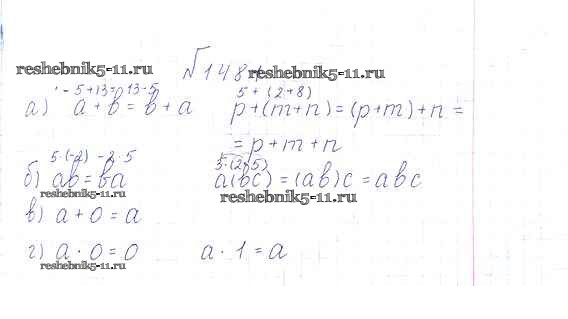 reshebnik5-11.ru reshebnik5-11.ru
№ 148
-5+13=13-5 5+(2+8)
а) a+b=b+a p+(m+n)=(p+m)+n=
=p+m+n
5·(-2) -2·5 5·(2·5)
б) ab=ba a(bc)=(ab)c=abc
reshebnik5-11.ru reshebnik5-11.ru
в) a+0=a
г) a·0=0 a·1=a
reshebnik5-11.ru